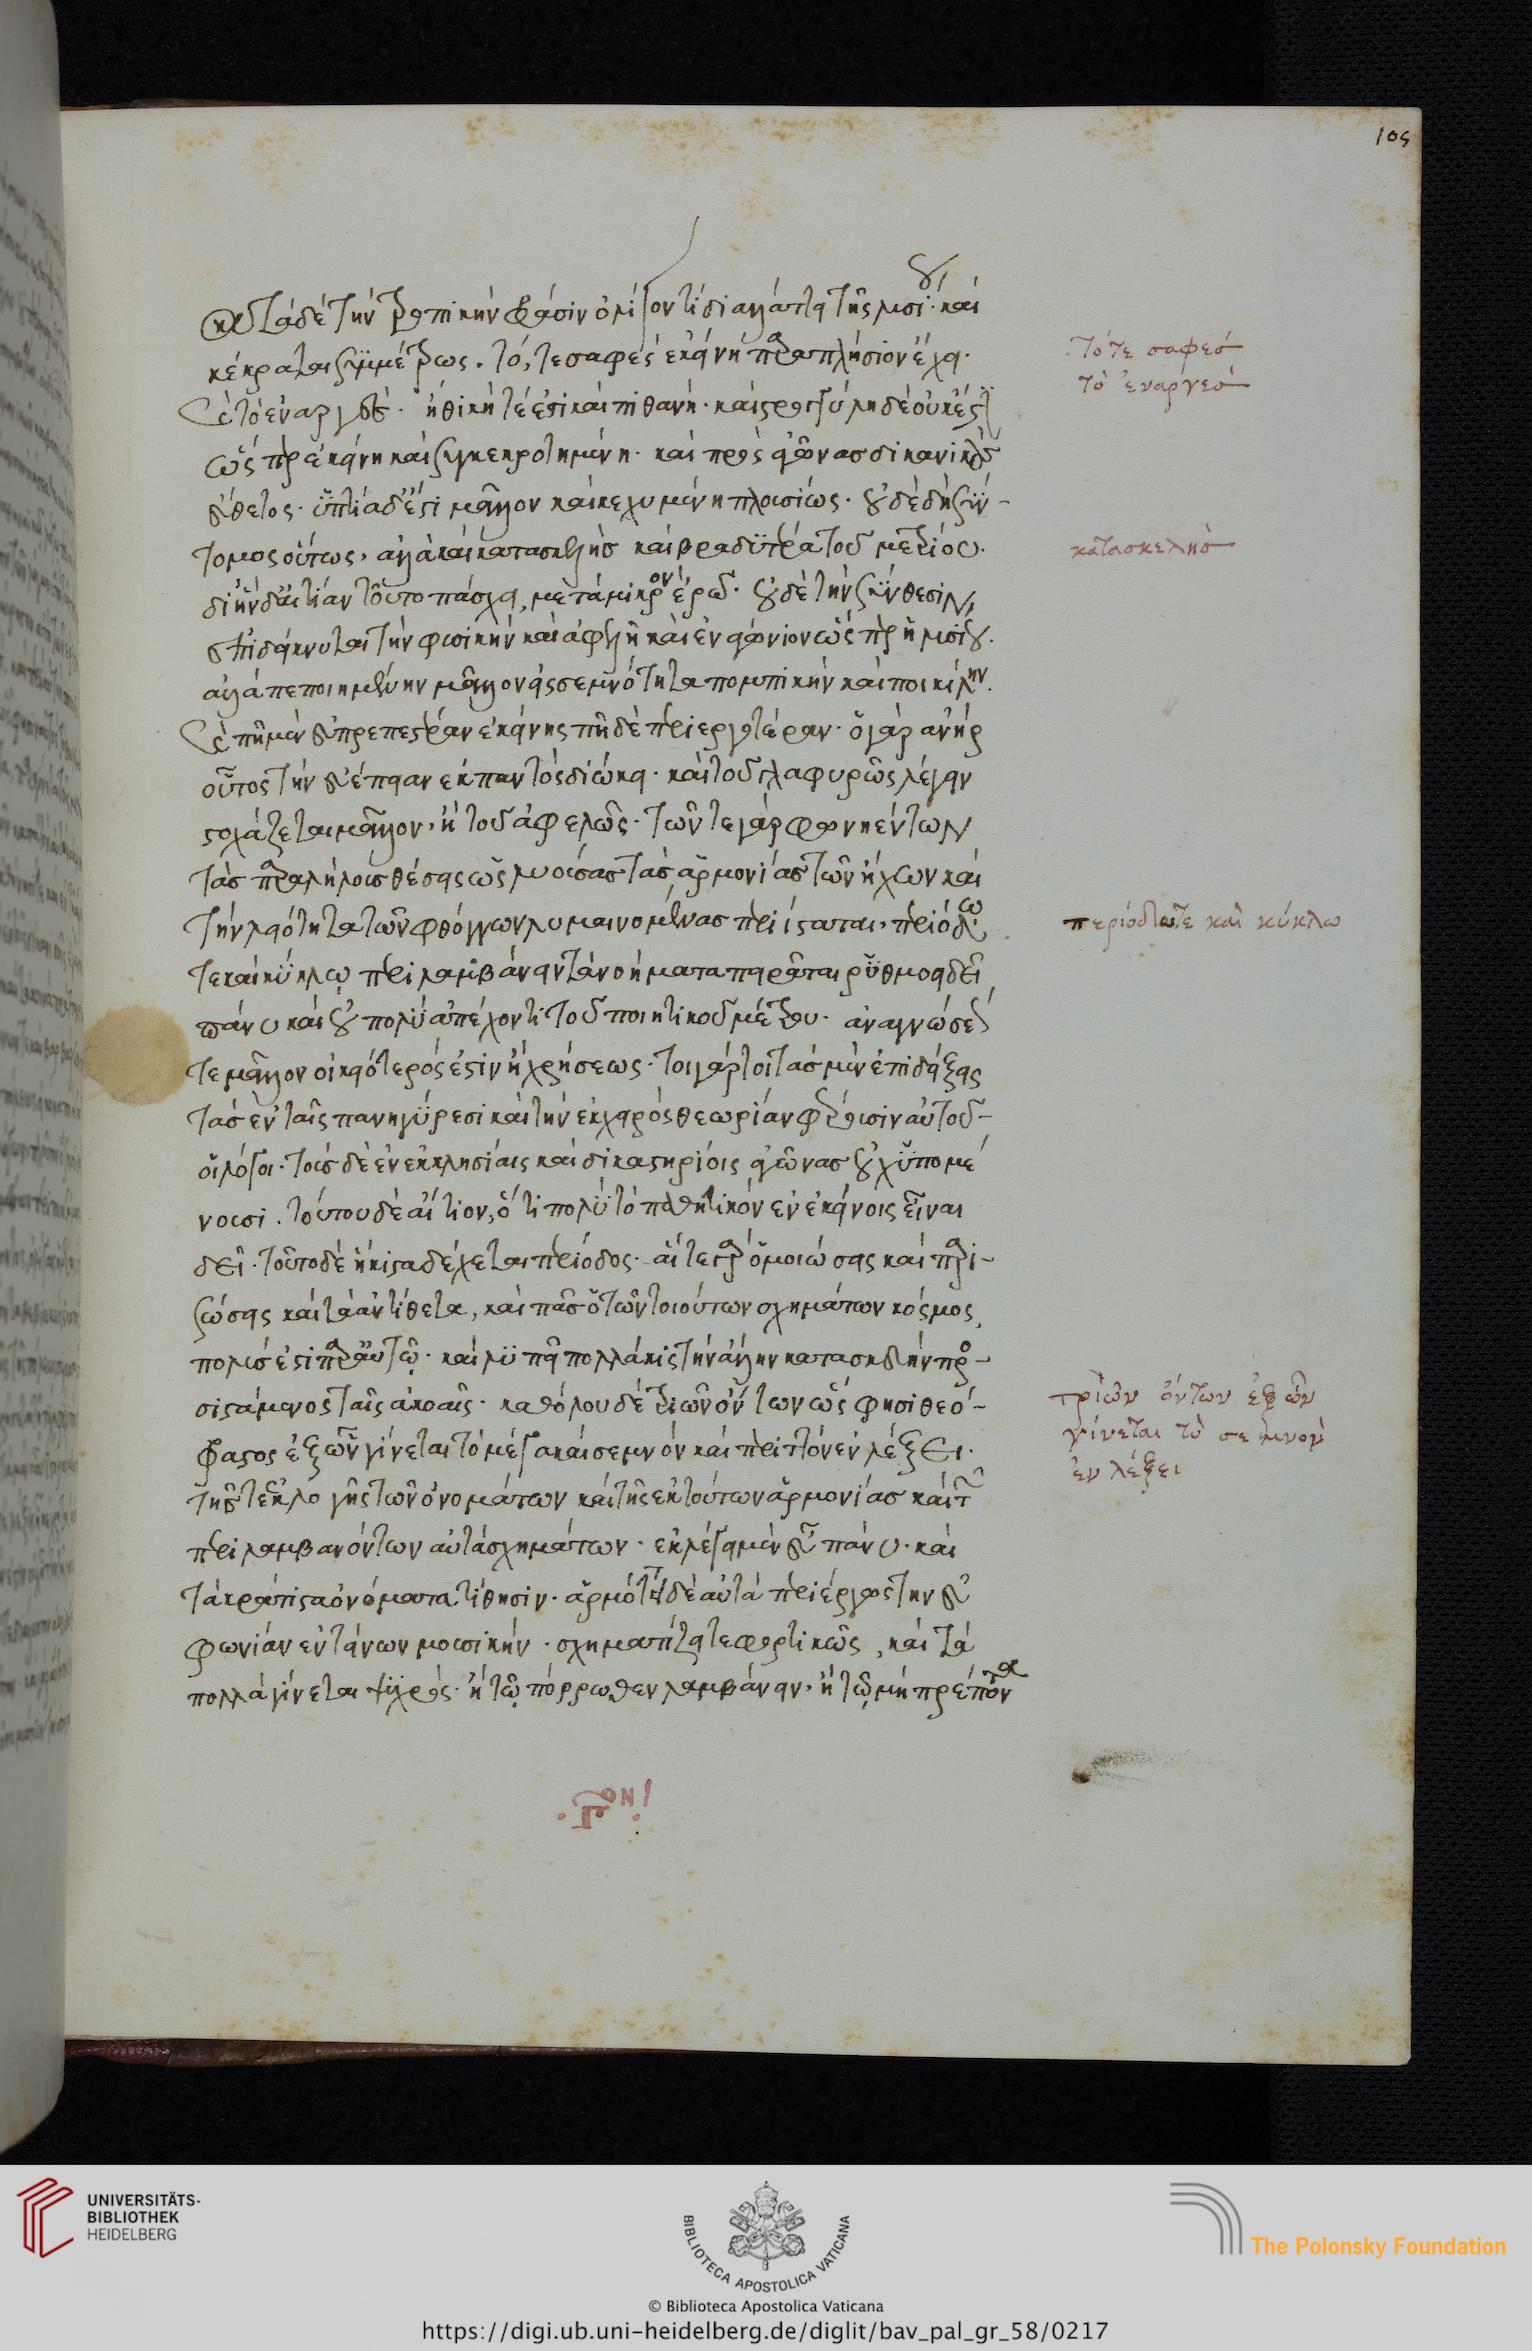 105
κατὰ δὲ τὴν τροπικὴν φράσιν ὀλίγον τι διαλλάττει τῆς λυσίου· καὶ
κέκραται συμμέτρως. τό, τε σαφὲς ἐκείνη παραπλήσιον ἔχει·
καὶ τὸ ἐναργές· ἠθική τέ ἐστι καὶ πιθανή· καὶ στρογγύλη δὲ οὐκ ἔστι
ὥσπερ ἐκείνη καὶ συγκεκροτημένη· καὶ πρὸς ἀγῶνας δικανικοὺς
εὔθετος· ὑπτία δ' ἔστι μᾶλλον καὶ κεχυμένη πλουσίως· οὐδὲ δὴ σύν-
τομος οὕτως, ἀλλὰ καὶ κατασκελὴς καὶ βραδυτέρα τοῦ μετρίου.
δι' ἣν δ' αἰτίαν τοῦτο πάσχει, μετὰ μικρὸν ἐρῶ. οὐδὲ τὴν σύνθεσιν,
ἐπιδείκνυται τὴν φυσικὴν καὶ ἀφελῆ καὶ ἐναγώνιον ὥσπερ ἡ λυσίου.
ἀλλὰ πεποιημένην μᾶλλον εἰς σεμνότητα πομπικὴν καὶ ποικίλην.
καὶ πῆ μὲν εὐπρεπεστέραν ἐκείνης πῆ δὲ περιεργοτέραν· ὁ γὰρ ἀνὴρ
οὗτος τὴν εὐέπειαν ἐκ παντὸς διώκει· καὶ τοῦ γλαφυρῶς λέγειν
στοχάζεται μᾶλλον, ἢ τοῦ ἀφελῶς· τῶν τε γὰρ φωνηέντων
τὰς παραλλήλοις θέσεις ὡς λυούσας τὰς ἁρμονίας τῶν ἤχων καὶ
τὴν λειότητα τῶν φθόγγων λυμαινομένας περιίσταται, περιόδω
τε καὶ κύκλῳ περιλαμβάνειν τὰ νοήματα πειρᾶται ῥυθμοειδεῖ
πάνυ καὶ οὐ πολὺ ἀπέχοντι τοῦ ποιητικοῦ μέτρου· ἀναγνώσεώς
τε μᾶλλον οἰκειότερός ἐστιν ἢ χρήσεως· τοιγάρτοι τὰς μὲν ἐπιδείξεις
τὰς ἐν ταῖς πανηγύρεσι καὶ τὴν ἐκ χειρὸς θεωρίαν φέρουσιν αὐτοῦ-
οἱ λόγοι· τοὺς δὲ ἐν ἐκκλησίαις καὶ δικαστηρίοις ἀγῶνας οὐχ ὑπομέ
νουσι. τούτου δὲ αἴτιον, ὅτι πολὺ τὸ παθητικὸν ἐν ἐκείνοις εἶναι
δεῖ· τοῦτο δὲ ἥκιστα δέχεται περίοδος· αἵ τε παρομοιώσεις καὶ παρι-
σώσεις καὶ τὰ ἀντίθετα, καὶ πᾶς ὁ τῶν τοιούτων σχημάτων κόσμος,
πολύς ἐστι παρ' αὐτῷ· καὶ λυπεῖ πολλάκις τὴν ἄλλην κατασκευὴν προ-
σιστάμενος ταῖς ἀκοαῖς· καθόλου δὲ τριῶν ὄντων ὥς φησι θεό-
φραστος ἐξ ὧν γίνεται τὸ μέγα καὶ σεμνὸν καὶ περιττὸν ἐν λέξει·
τῆς τε ἐκλογῆς τῶν ὀνομάτων καὶ τῆς ἐκ τούτων ἁρμονίας καὶ τῶν
περιλαμβανόντων αὐτὰ σχημάτων· ἐκλέγει μὲν εὖ πάνυ· καὶ
τὰ κράτιστα ὀνόματα τίθησιν· ἁρμόττει δὲ αὐτὰ περιέργως τὴν εὐ
φωνίαν ἐντείνων μουσικήν· σχηματίζει τε φορτικῶς, καὶ τὰ
πολλὰ γίνεται ψυχρός· ἢ τῷ πόρρωθεν λαμβάνειν, ἢ τῷ μὴ πρέποντα
τό τε σαφές
τὸ ἐναργές
κατασκελής
περίοδω τε καὶ κύκλω
τριῶν ὄντων ἐξ ὧν
γίνεται τὸ σεμνὸν
ἐν λέξει
UNIVERSITÄTS-
BIBLIOTHEK
HEIDELBERG
BIBLIOTECA APOSTOLICA VATICANA
The Polonsky Foundation
© Biblioteca Apostolica Vaticana
https://digi.ub.uni-heidelberg.de/diglit/bav_pal_gr_58/0217